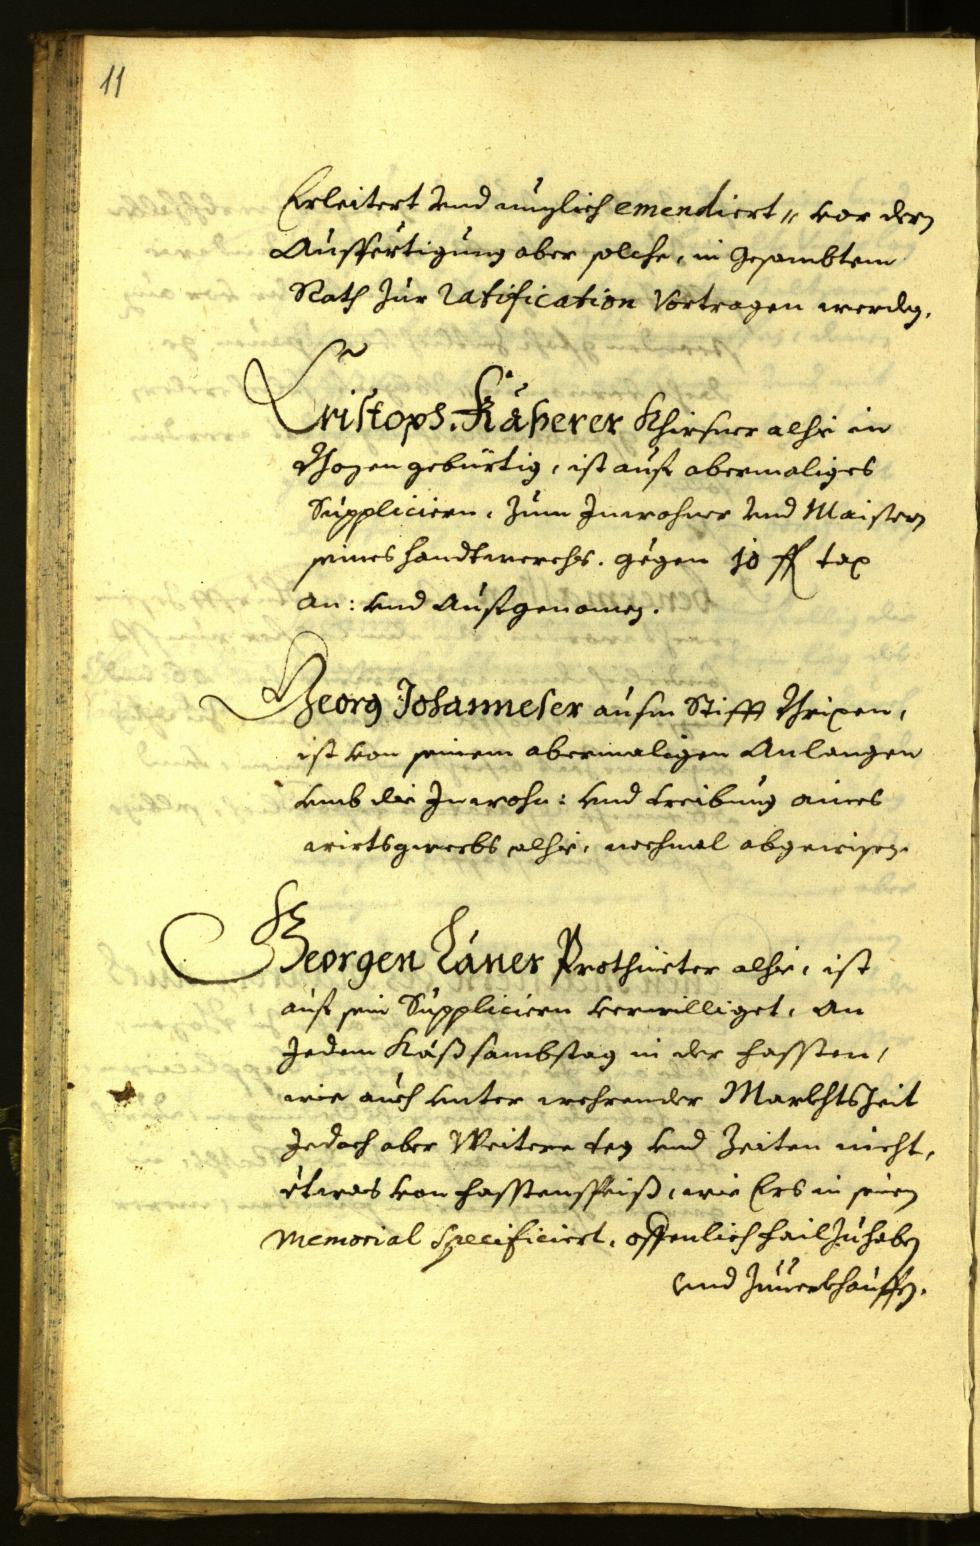 11
Erleitert und müglich emendiert, vor dern
Ausfertigung aber solche, in Gesambtem
Rath zur Ratification Vortragen werden.
Cristoph Käserer Khirsner alhie in
Bozen gebürtig, ist auf abermaliges
Suppliciern, zum Inwohner und Maistern
seines handtwerchs, gegen 10 fl tax
an: und aufgenomen.
Georg Johanneser aufm Stifft Brixen,
ist von seinem abermaligen Anlangen
umb die Inwohn: und treibung aines
wirtsgwerbs alhie, nochmal abgewisen.
Georgen Laner Prothüeter alhie, ist
auf sein Suppliciern verwilliget, an
Jedem Käßsambstag in der fassten,
wie auch unter wehrender Markhtszeit
Jedoch aber Weitere teg und Zeiten nicht,
etwas von fasstenspeiß, wie Ers in seinen
Memorial specificiert, offenlich fail zuhaben
und zuverkhauffen.